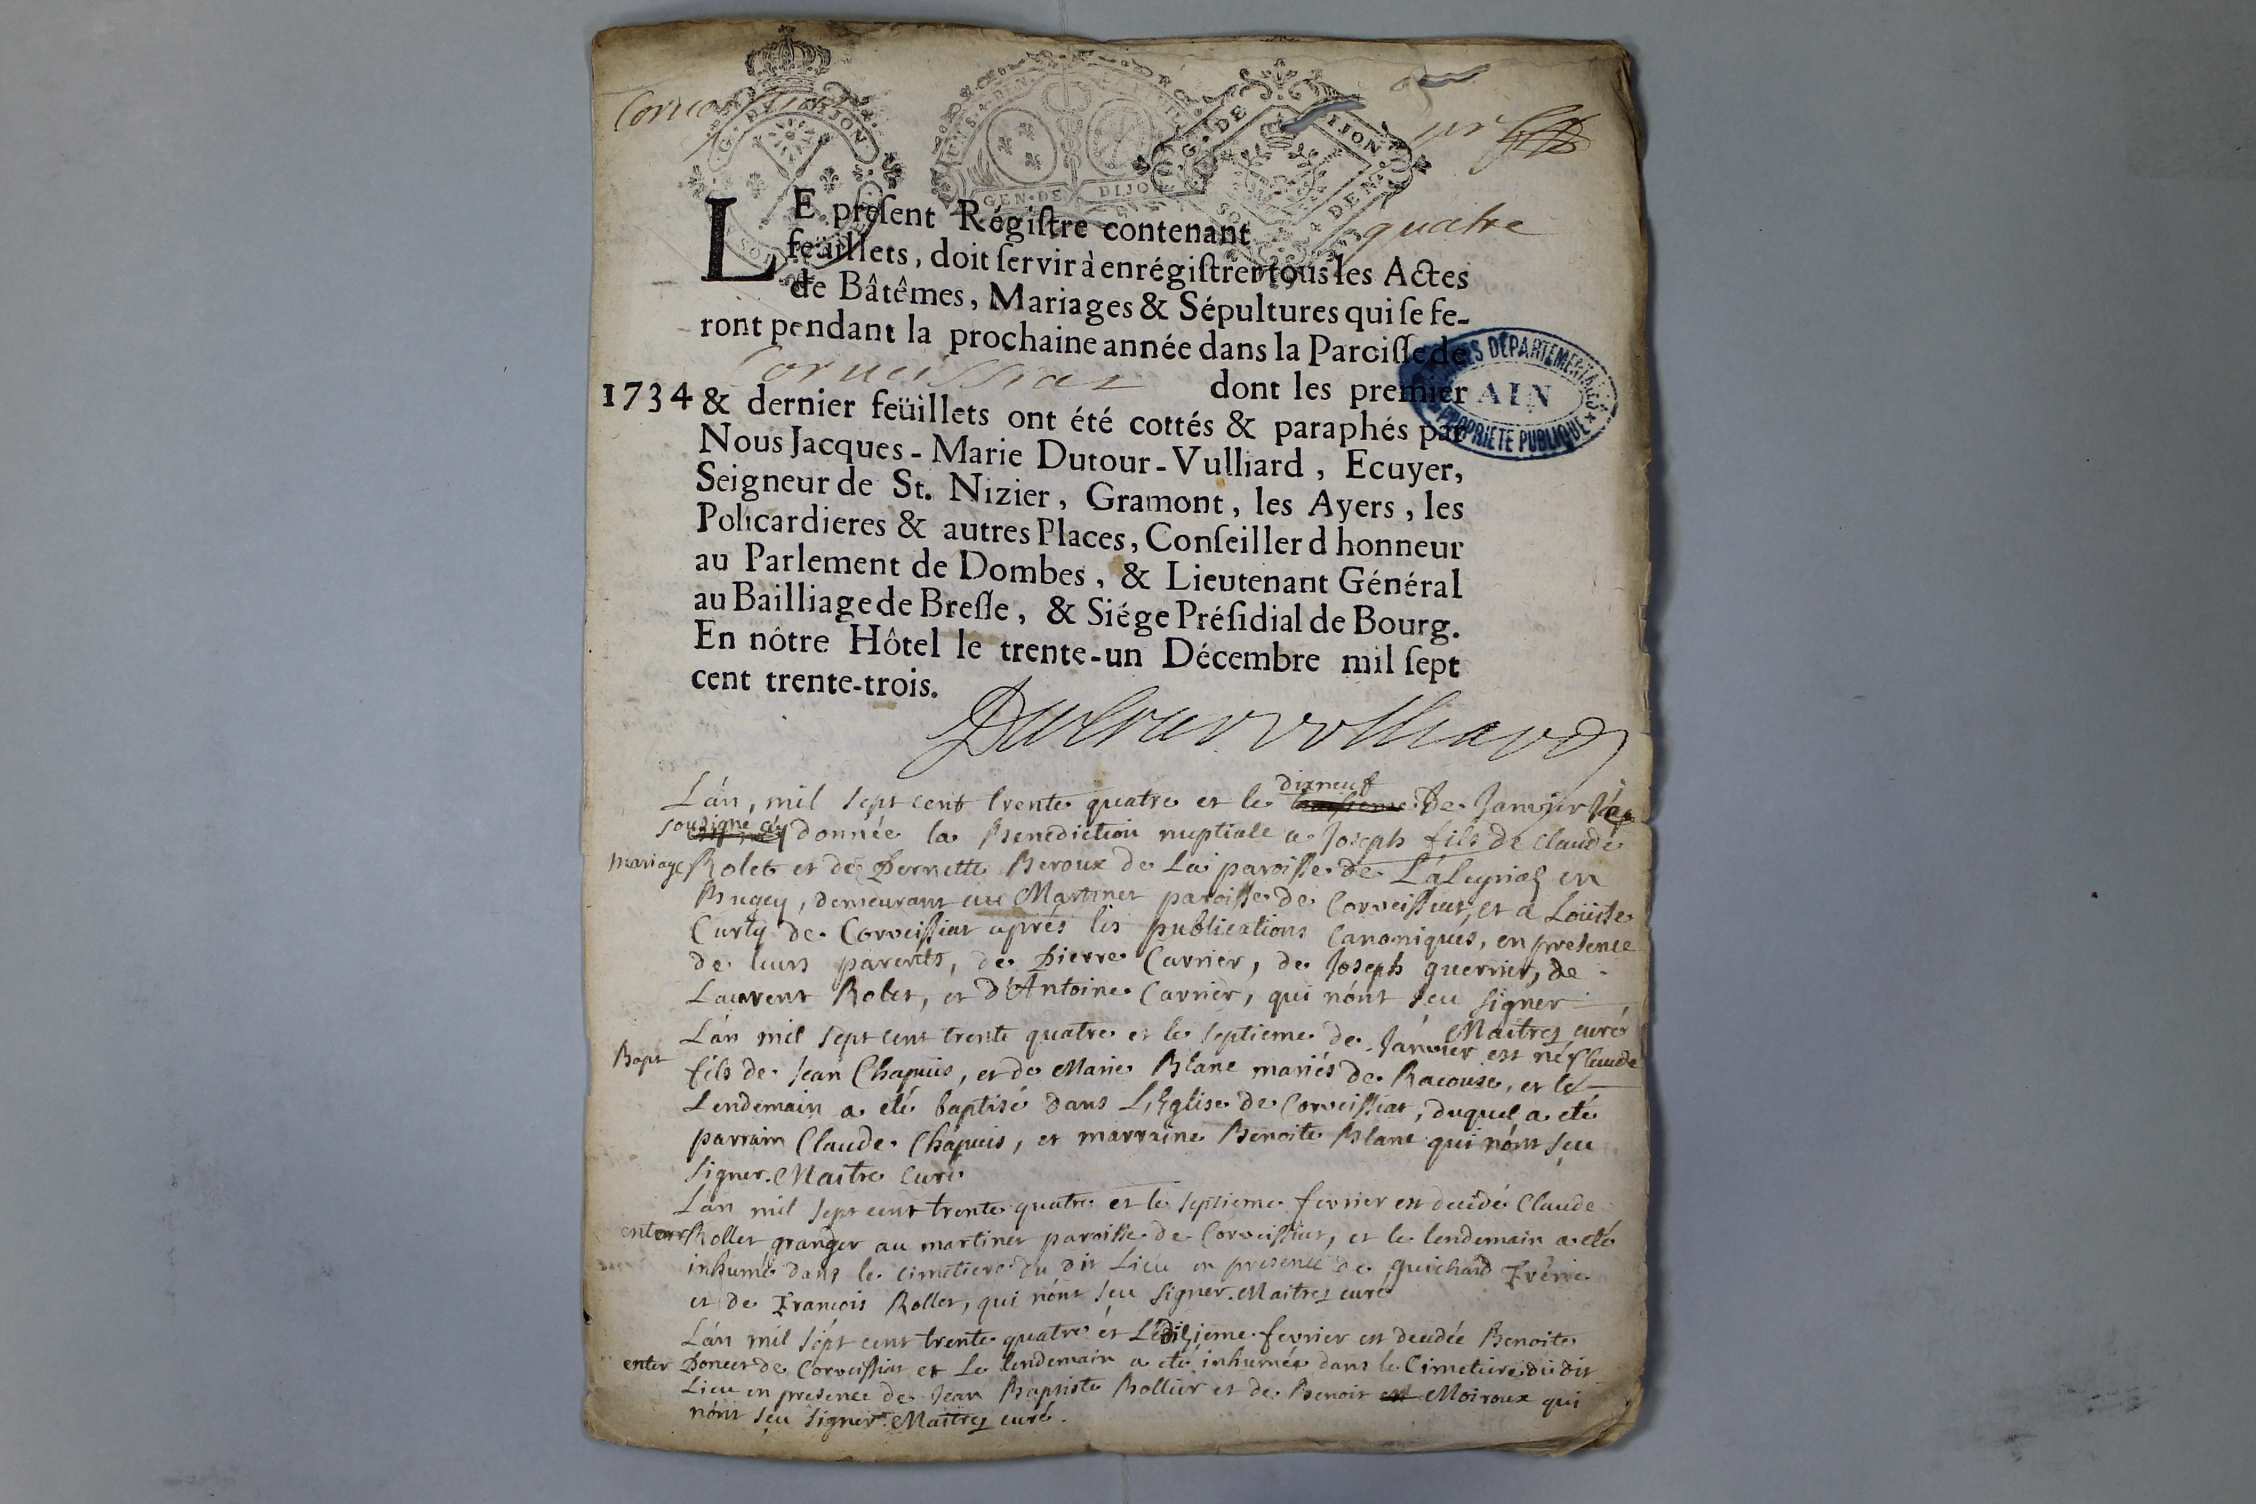 Corveissiat
G. DE DIJON
GEN. DE DIJON
G. DE DIJON
SOLS DEN.
pr
quatre
LE preſent Régiſtre contenant
feüillets, doit ſervir à enrégiſtrer tous les Actes
de Bâtêmes, Mariages & Sépultures qui ſe fe-
ront pendant la prochaine année dans la Paroiſſe de
Corveissiat dont les premier
1734 & dernier feüillets ont été cottés & paraphés par
Nous Jacques-Marie Dutour-Vulliard, Ecuyer,
Seigneur de St. Nizier, Gramont, les Ayers, les
Policardieres & autres Places, Conſeiller d honneur
au Parlement de Dombes, & Lieutenant Général
au Bailliage de Breſſe, & Siége Préſidial de Bourg.
En nôtre Hôtel le trente-un Décembre mil ſept
cent trente-trois.
ARCHIVES DÉPARTEMENTALES
AIN
PROPRIÉTÉ PUBLIQUE
Dutour vulliard
L'án, mil sept cent trente quatre et le dixneuf de Janvier j'ay
sousigné donnée la Benediction nuptiale a Joseph fils de Claude
mariage Rolet et de Pernette Beroux de La paroisse de L'áleyriaz en
Bugey, demeurant au Martinet paroisse de Corveissiat, et a Loüise
Curty de Corveissiat aprés les publications Canoniques, en presence
de leurs parents, de Pierre Carrier, de Joseph guerrier, de
Laurent Rolet, et d'Antoine Carrier, qui n'ónt sçu signer
Maitrez curé
Bapt L'án mil sept cent trente quatre et le septieme de Janvier est né Claude
fils de Jean Chapuis, et de Marie Blanc mariés de Racouse, et le
Lendemain a eté baptisé dans L'Eglise de Corveissiat, duquel a eté
parrain Claude Chapuis, et marraine Benoite Blanc qui n'ónt sçu
signer. Maitre Curé
L'an mil sept cent trente quatre et le septieme fevrier est decidé Claude
enterr Rollet granger au martinet paroisse de Corveissiat, et le lendemain a eté
inhumé dans le cimetiere du dit Lieu en presence de guichard Frérie
et de François Rollet, qui n'ónt sçu signer. Maitrez curé
L'án mil sépt cent trente quatre et Le dixieme fevrier est decedée Benoite
enter Poncet de Corveissiat et Le lendemain a eté inhumée dans le Cimetiere du dit
Lieu en presence de Jean Baptiste Bollier et de Benoit Moiroux qui
n'ónt sçu signer. Maitrez curé.